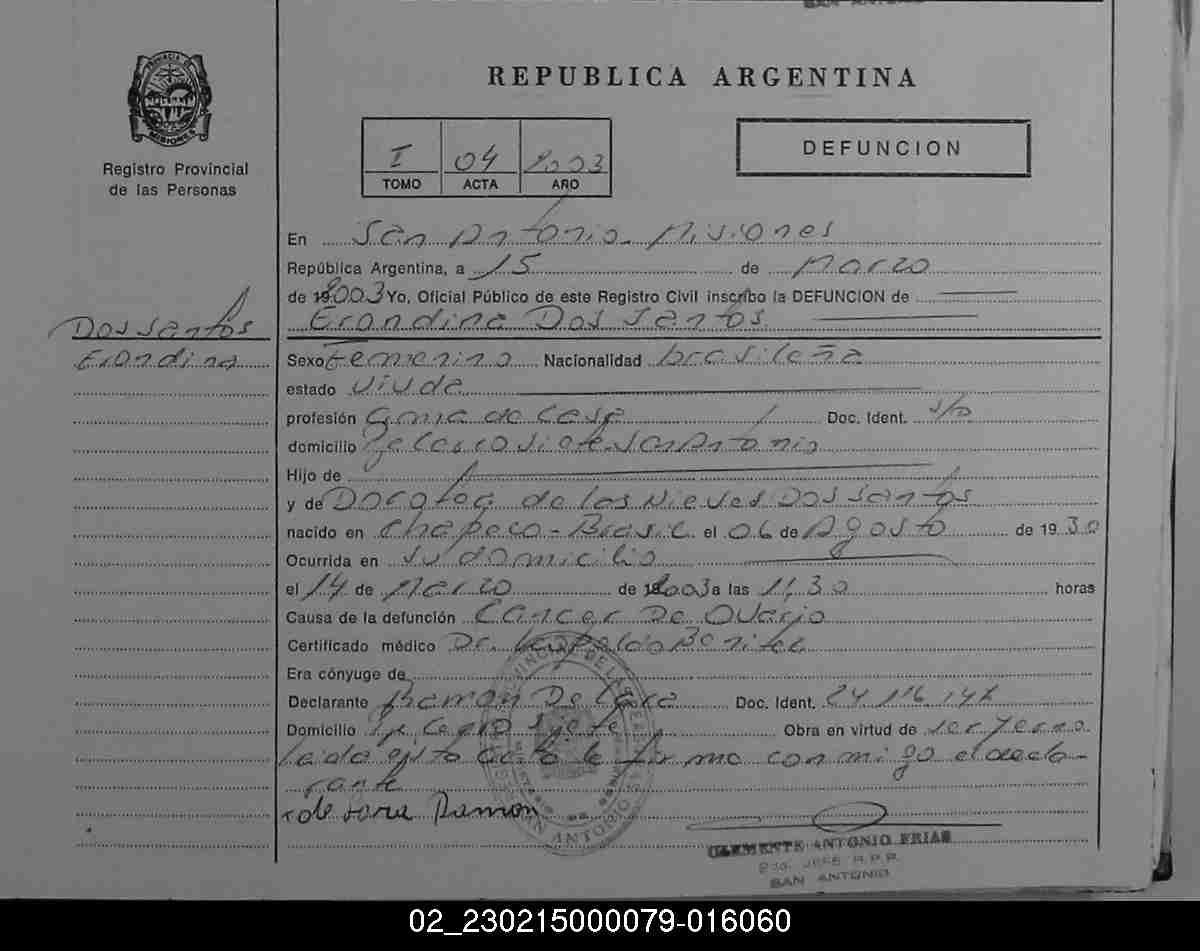 REPUBLICA ARGENTINA
PROVINCIA DE
MISIONES
Registro Provincial
de las Personas
I 04 2003
TOMO ACTA AÑO
DEFUNCION
En San Antonio. Misiones
República Argentina, a 15 de Marzo
de 2003 Yo, Oficial Público de este Registro Civil inscribo la DEFUNCION de
Erondina Dos Santos
Dos Santos
Erondina
Sexo Femenino Nacionalidad brasileña
estado viuda
profesión ama de casa Doc. Ident. s/d
domicilio San Antonio
Hijo de
y de Dorotea de las Nieves Dos Santos
nacido en Chapeco - Brasil el 06 de Agosto de 1930
Ocurrida en su domicilio
el 14 de Marzo de 2003 a las 11,30 horas
Causa de la defunción Cancer De Ovario
Certificado médico Dr. Leopoldo Benitez
Era cónyuge de
Declarante Ramon De Lara Doc. Ident.
Domicilio Obra en virtud de ser yerno
leida esta acta la firma conmigo el decla-
rante
de Lara Ramon
CLEMENTE ANTONIO FRIAS
2do. JEFE R.P.P.
SAN ANTONIO
02_230215000079-016060